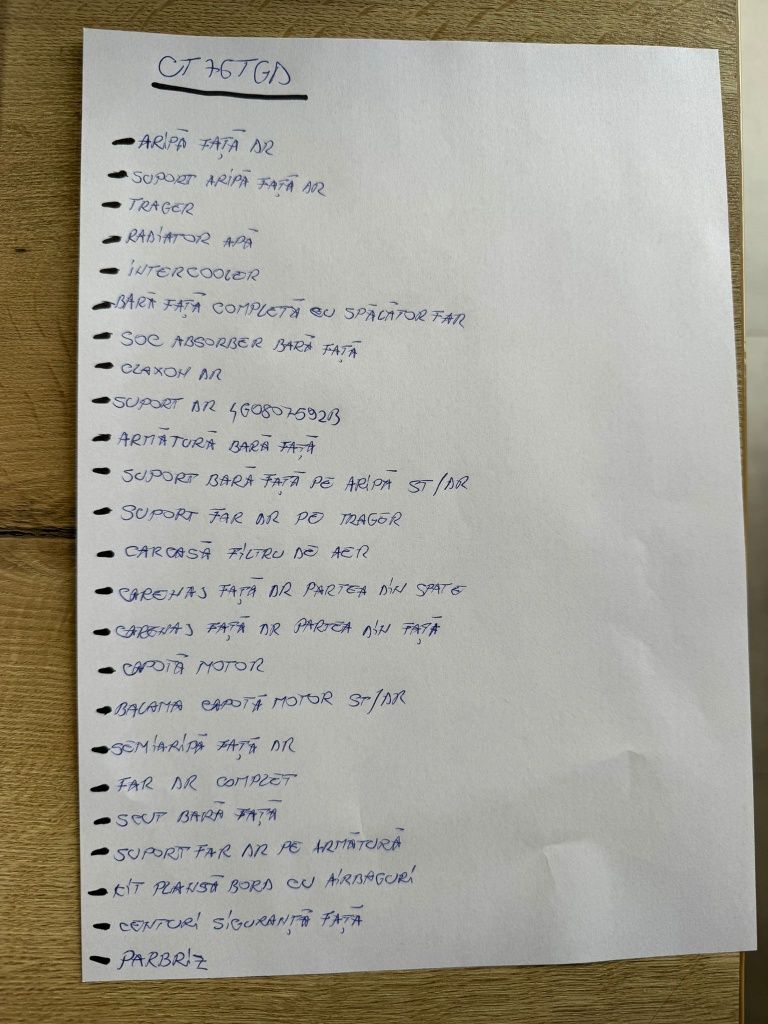 CT76TGD
- ARIPĂ FAȚĂ DR
- SUPORT ARIPĂ FAȚĂ DR
- TRAGER
- RADIATOR APĂ
- INTERCOOLER
- BARĂ FAȚĂ COMPLETĂ CU SPĂLĂTOR FAR
- SOC ABSORBER BARĂ FAȚĂ
- CLAXON DR
- SUPORT DR 4G0807592B
- ARMĂTURĂ BARĂ FAȚĂ
- SUPORT BARĂ FAȚĂ PE ARIPĂ ST/DR
- SUPORT FAR DR PE TRAGER
- CARCASĂ FILTRU DE AER
- CARENAJ FAȚĂ DR PARTEA DIN SPATE
- CARENAJ FAȚĂ DR PARTEA DIN FAȚĂ
- CAPOTĂ MOTOR
- BALAMA CAPOTĂ MOTOR ST/DR
- SEMIARIPĂ FAȚĂ DR
- FAR DR COMPLET
- SCUT BARĂ FAȚĂ
- SUPORT FAR DR PE ARMĂTURĂ
- KIT PLANSĂ BORD CU AIRBAGURI
- CENTURI SIGURANȚĂ FAȚĂ
- PARBRIZ